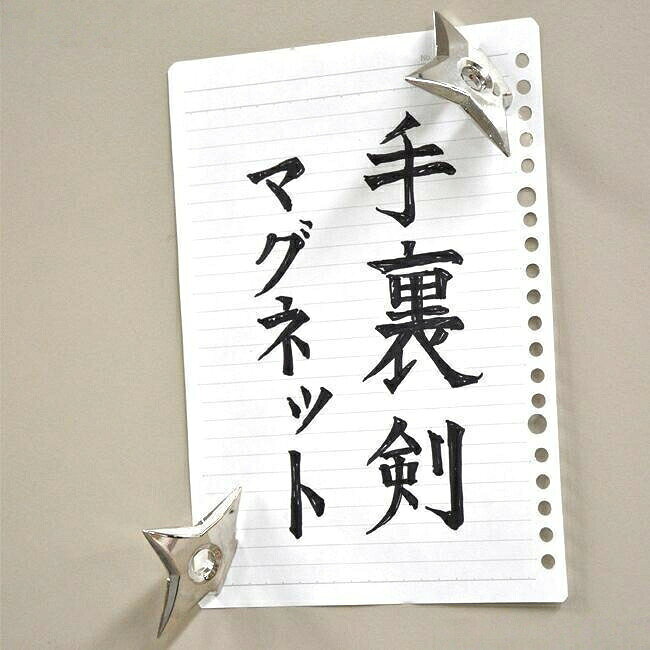 手裏剣
マグネット
No.